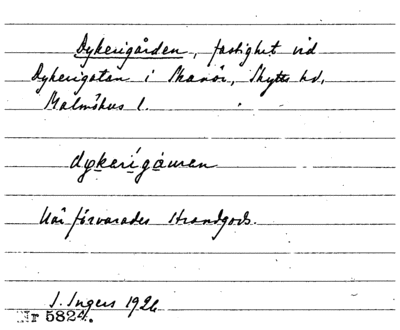 Dykerigården, fastighet vid
Dykerigatan i Skanör, Skytts hd,
Malmöhus l.
dykarígåuren
Här förvarades strandgods.
I. Ingers 1926
Nr 5824.